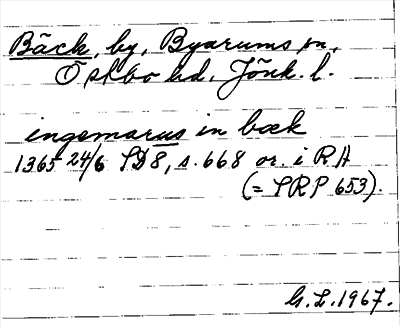 Bäck, by, Byarums sn,
Östbo hd, Jönk. l.
ingemarus in bæk
1365 24/6 SD 8, s. 668 or. i RA
(= SRP 653).
G. L. 1967.